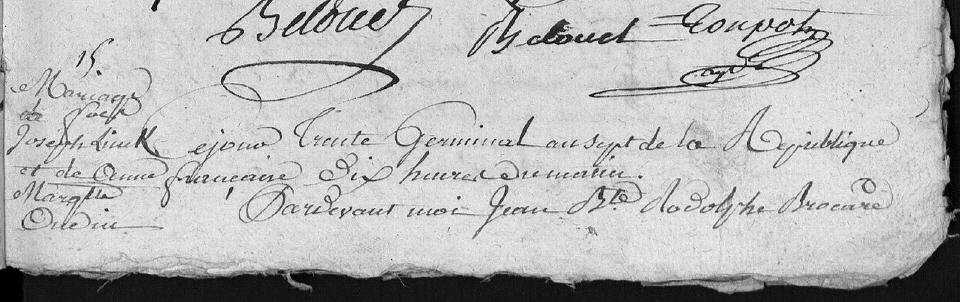 Belouet Belouet Toupot
15
Mariage
de Josep
Joseph Linck
et de Anne
Margtte
Oudin
Cejourd Trente Germinal an sept de la République
francaise Dix heures du matin.
Pardevant moi Jean Bte Rodolphe Brocard